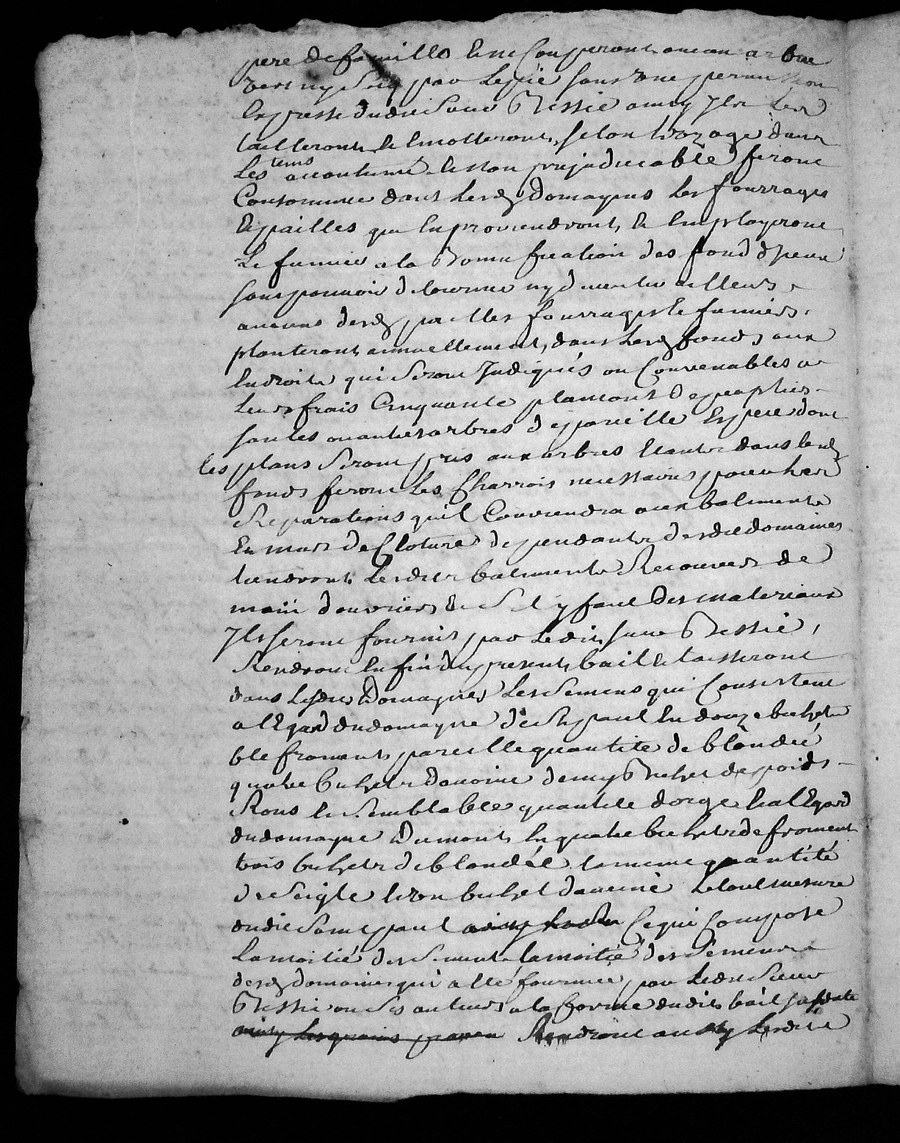 pere de famille & ne Couperont aucun arbre
vert ny Sec par le pié sans une permission
Expresse dudit Sieur Bessié ainsy Ils les
tailleront & Emotteront, selon l'uzage dans
Les tems accoutumé & non prejudiciable feront
Consommer dans lesd domagnes les fourrages
& pailles qui En proviendront, & Employeront
Le fumier a la Bonnification des fond d'iceux
sans pouvoir detourner ny divertir ailleurs
aucuns desd pailles fourrages & fumiers,
planteront annuellement, dans lesd fonds aux
Endroits qui Seront Indiqués ou Convenables a
Leurs frais Cinquante plansont de peuplier
saules ou autres arbres de pareille Espece dont
les plans Seront pris aux arbres Etants dans lesd
fonds feront les Charrois necessaires pour les
Reparations qu'il Conviendra aux batiments
Et murs de Cloture dependants desdits domaines
tiendront lesdits batiments Recouverts de
main d'ouvriers & S'il y faut des materiaux
Ils seront fournis par ledit sieur Bessié,
Rendront En fin du present bail & laisseront
dans lesdits Domagnes Les Semens qui Consistent
a l'Egard du domagne de St paul En douze bichets
blé froment, pareille quantité de blondée
quatre bichets d'avoine demy Bichet de poids
Rons & Semblable quantité d'orge & a l'Egard
du domagne Dumont En quatre bichets de froment
trois bichets de blondée la meme quantité
de Seigle & un bichet d'avoine Le tout mesure
dudit Saint paul Ce qui Compose
La moitié des Semens la moitié des Semens
desd domaines qui a été fournie, par ledit Sieur
Bessié ou Ses auteurs a la forme dudit bail susdate
Rendront aussy lesdits